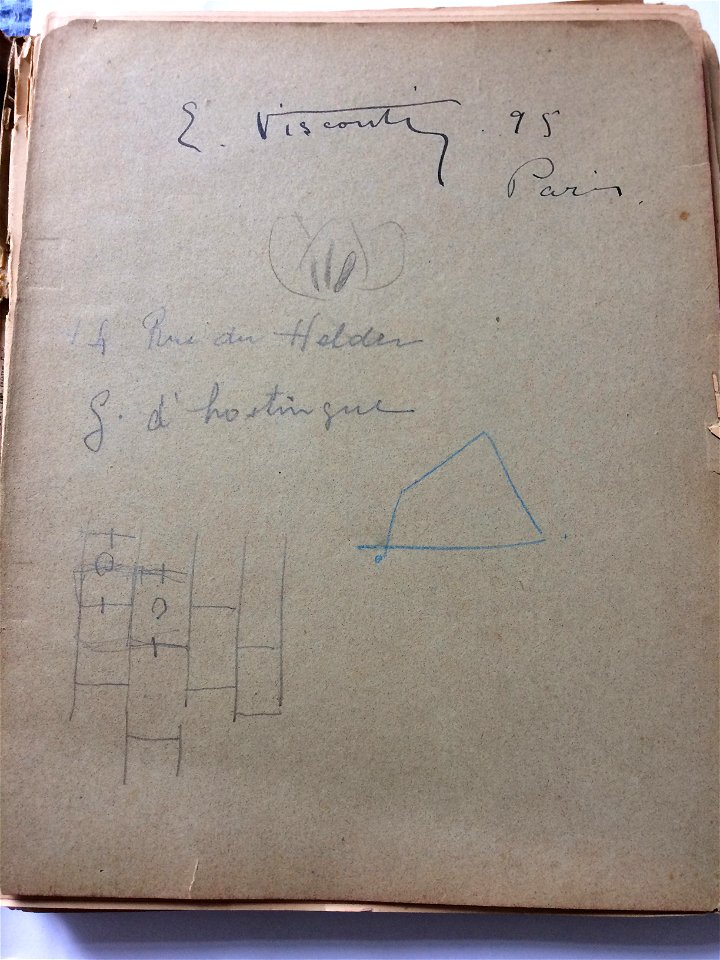 E. Visconti. 95
Paris.
14 Rue du Helder
G. d'hostingue